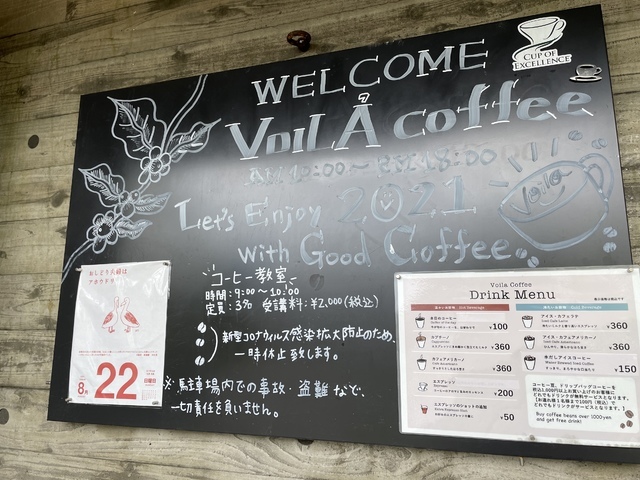 CUP OF
EXCELLENCE
WELCOME
VOILÀ coffee
AM.10:00〜P.M.18:00
Let's Enjoy 2021
With Good Coffee.
Voila
コーヒー教室
時間:9:00〜10:00
定員:3名 受講料:¥2,000(税込)
新型コロナウィルス感染拡大防止のため、
一時休止致します。
※駐車場内での事故・盗難など、
一切責任を負いません。
おしどり夫婦は
8月
22
日曜日
Voila Coffee
Drink Menu
本日のコーヒー ¥100
カプチーノ ¥360
カフェアメリカーノ ¥360
エスプレッソ ¥200
エスプレッソのショットの追加 ¥50
アイス・カフェラテ ¥360
アイス・カフェアメリカーノ ¥360
水だしアイスコーヒー ¥150
コーヒー豆、ドリップバッグコーヒーを
税込1,000円以上お買い上げのお客様に
どれでもドリンクが無料サービスとなります。
Buy coffee beans over 1000yen
and get free drink!